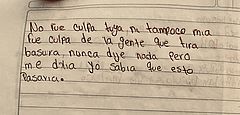 No fue culpa tuya ni tampoco mia
fue culpa de la gente que tira
basura nunca dije nada pero
me dolia yo sabia que esto
Pasaria.